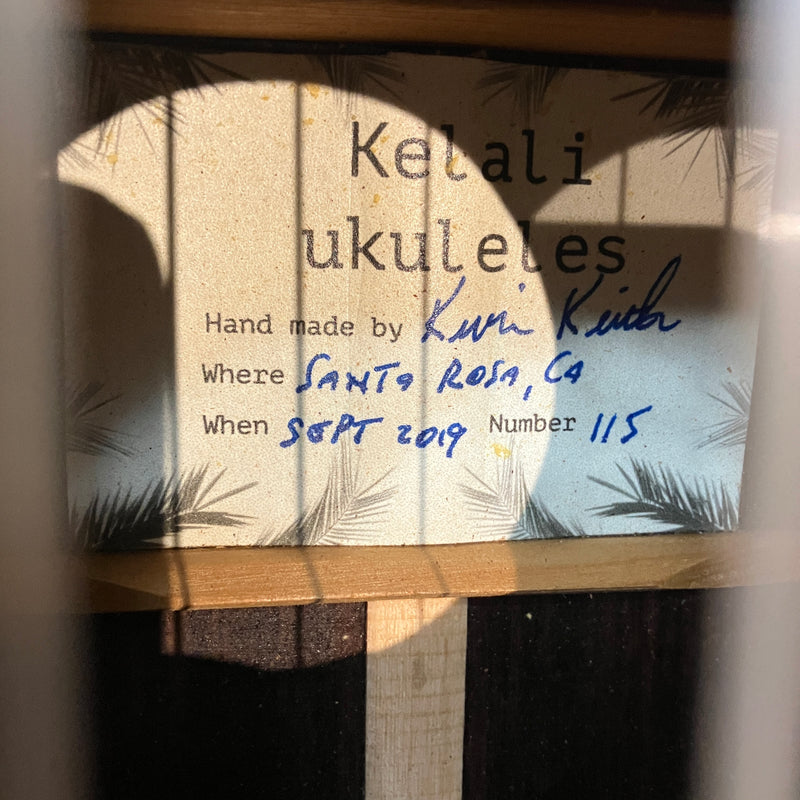 Kelali
ukuleles
Hand made by Kevin
Where SANTA ROSA, CA
When SEPT 2019 Number 115